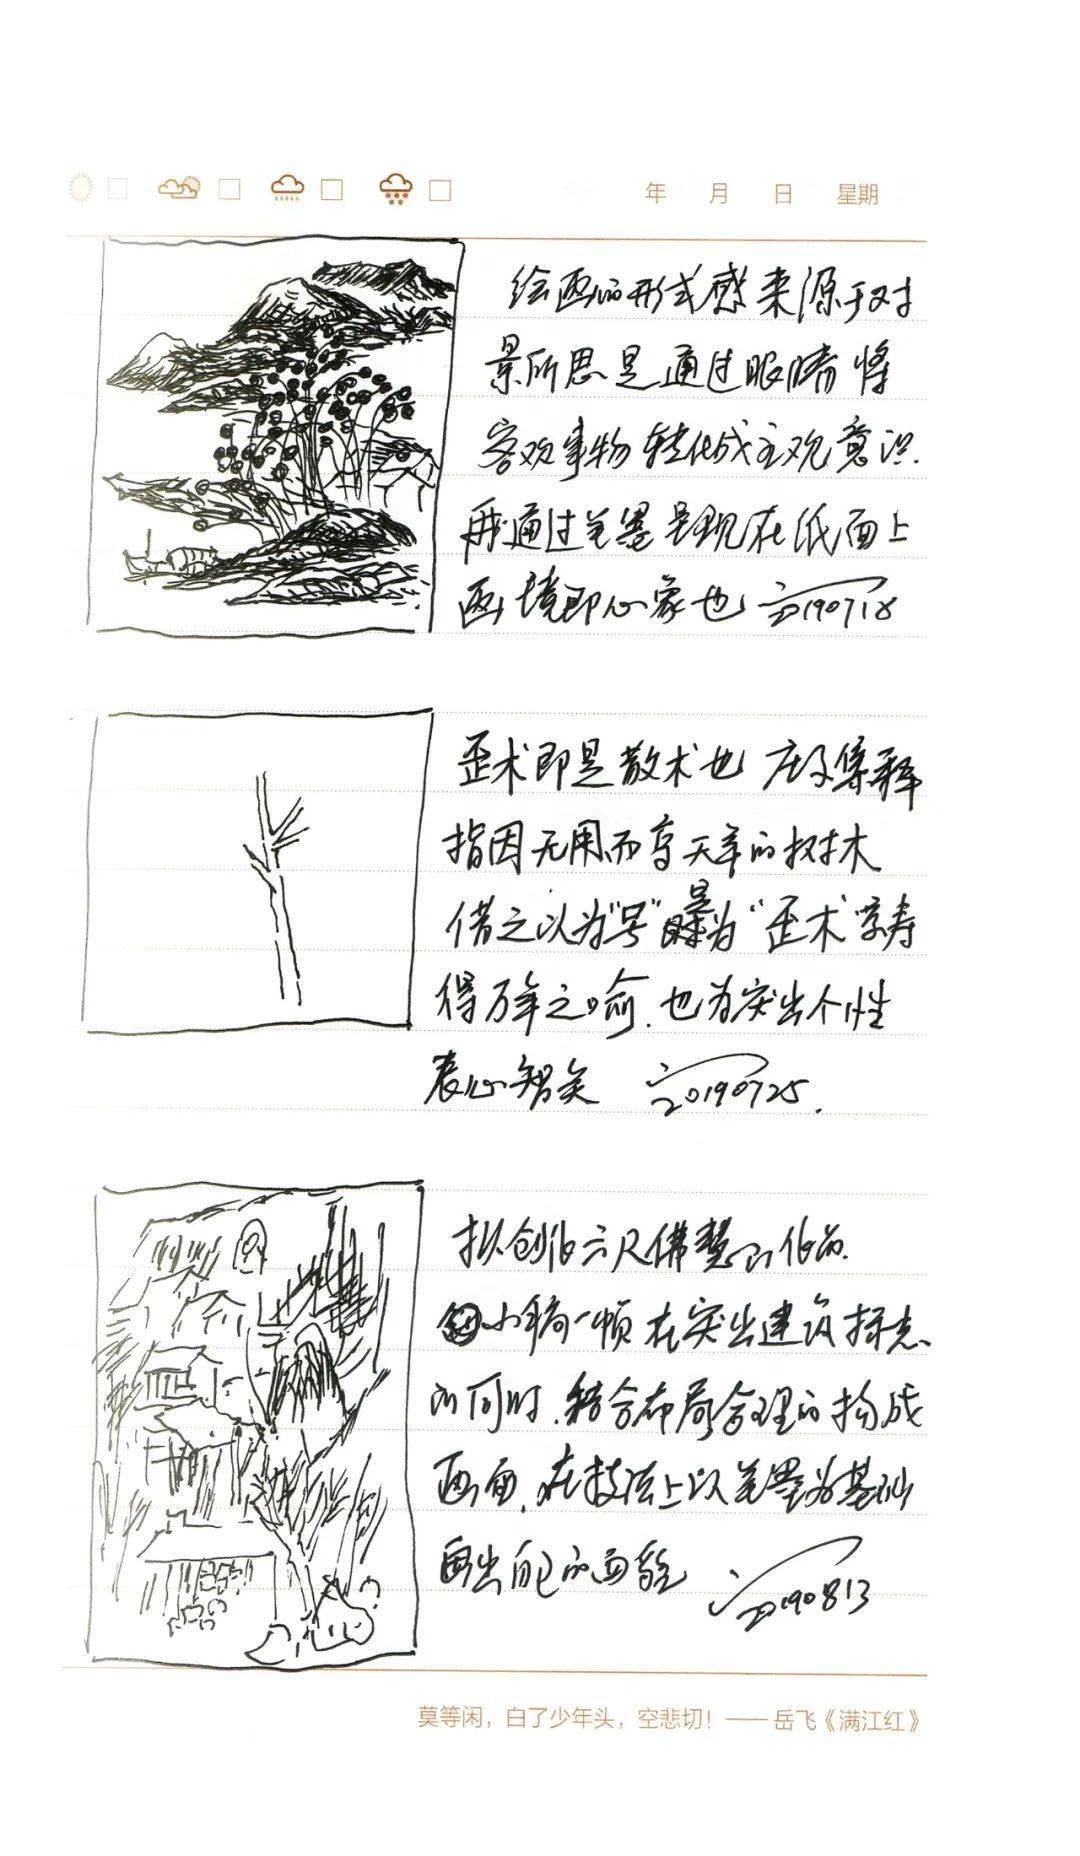 年 月 日 星期
绘画的形式感来源于对
景所思是通过眼睛将
客观事物转化成主观意识.
再通过笔墨呈现在纸面上
画境即心象也 20190718
歪木即是散木也 庄子集释
指因无用而享天年的树木
借之以为"号" 是为"歪木"享寿
得万年之喻.也为突出个性
表心智矣 20190725.
拟创作六尺佛慧山作品.
小稿一帧 在突出建筑标志
的同时.结合布局合理的构成
画面.在技法上以笔墨为基础
画出自己的面貌 20190813
莫等闲，白了少年头，空悲切！——岳飞《满江红》